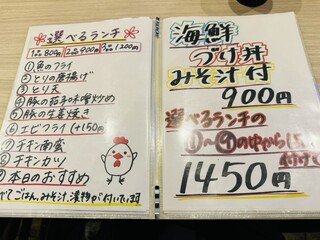 選べるランチ
1品800円 2品900円 3品1200円
①魚のフライ
②とりの唐揚げ
③とり天
④豚の茄子の味噌炒め
⑤豚の生姜焼き
⑥エビフライ(+150円)
⑦チキン南蛮
⑧チキンカツ
⑨本日のおすすめ
べてごはん、みそ汁、漬物が付いています
海鮮
づけ丼
みそ汁付
900円
選べるランチの
①〜⑨の中から1品
付けて
1450円